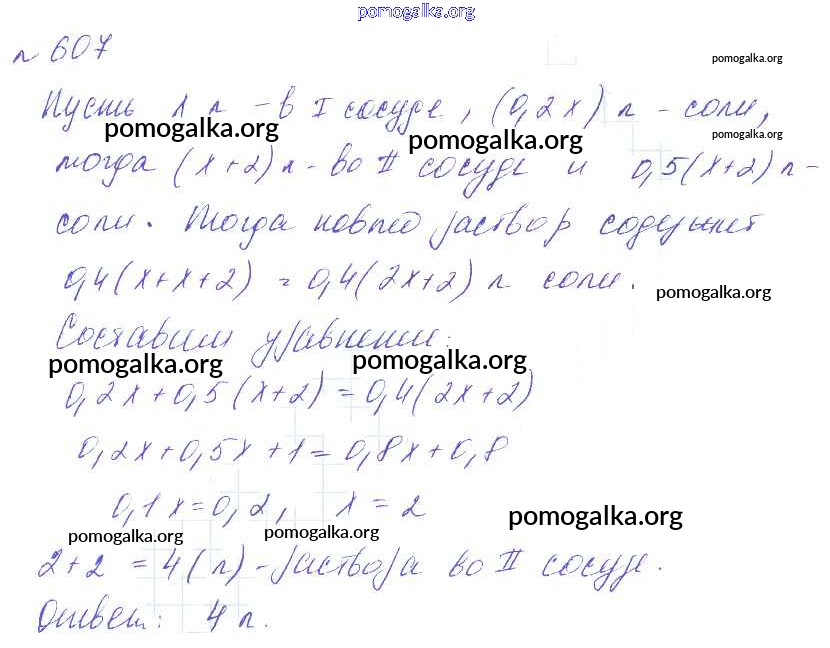 pomogalka.org
№ 607
pomogalka.org
Пусть х л - в I сосуде, (0,2х) л - соли,
pomogalka.org pomogalka.org pomogalka.org
тогда (х+2) л - во II сосуде и 0,5(х+2) л -
соли. Тогда новый раствор содержит
0,4(х+х+2) = 0,4(2х+2) л соли.
pomogalka.org
Составим уравнение:
pomogalka.org pomogalka.org
0,2х+0,5(х+2)=0,4(2х+2)
0,2х+0,5х+1=0,8х+0,8
0,1х=0,2, х=2
pomogalka.org pomogalka.org pomogalka.org
2+2 = 4(л) - раствора во II сосуде.
Ответ: 4 л.